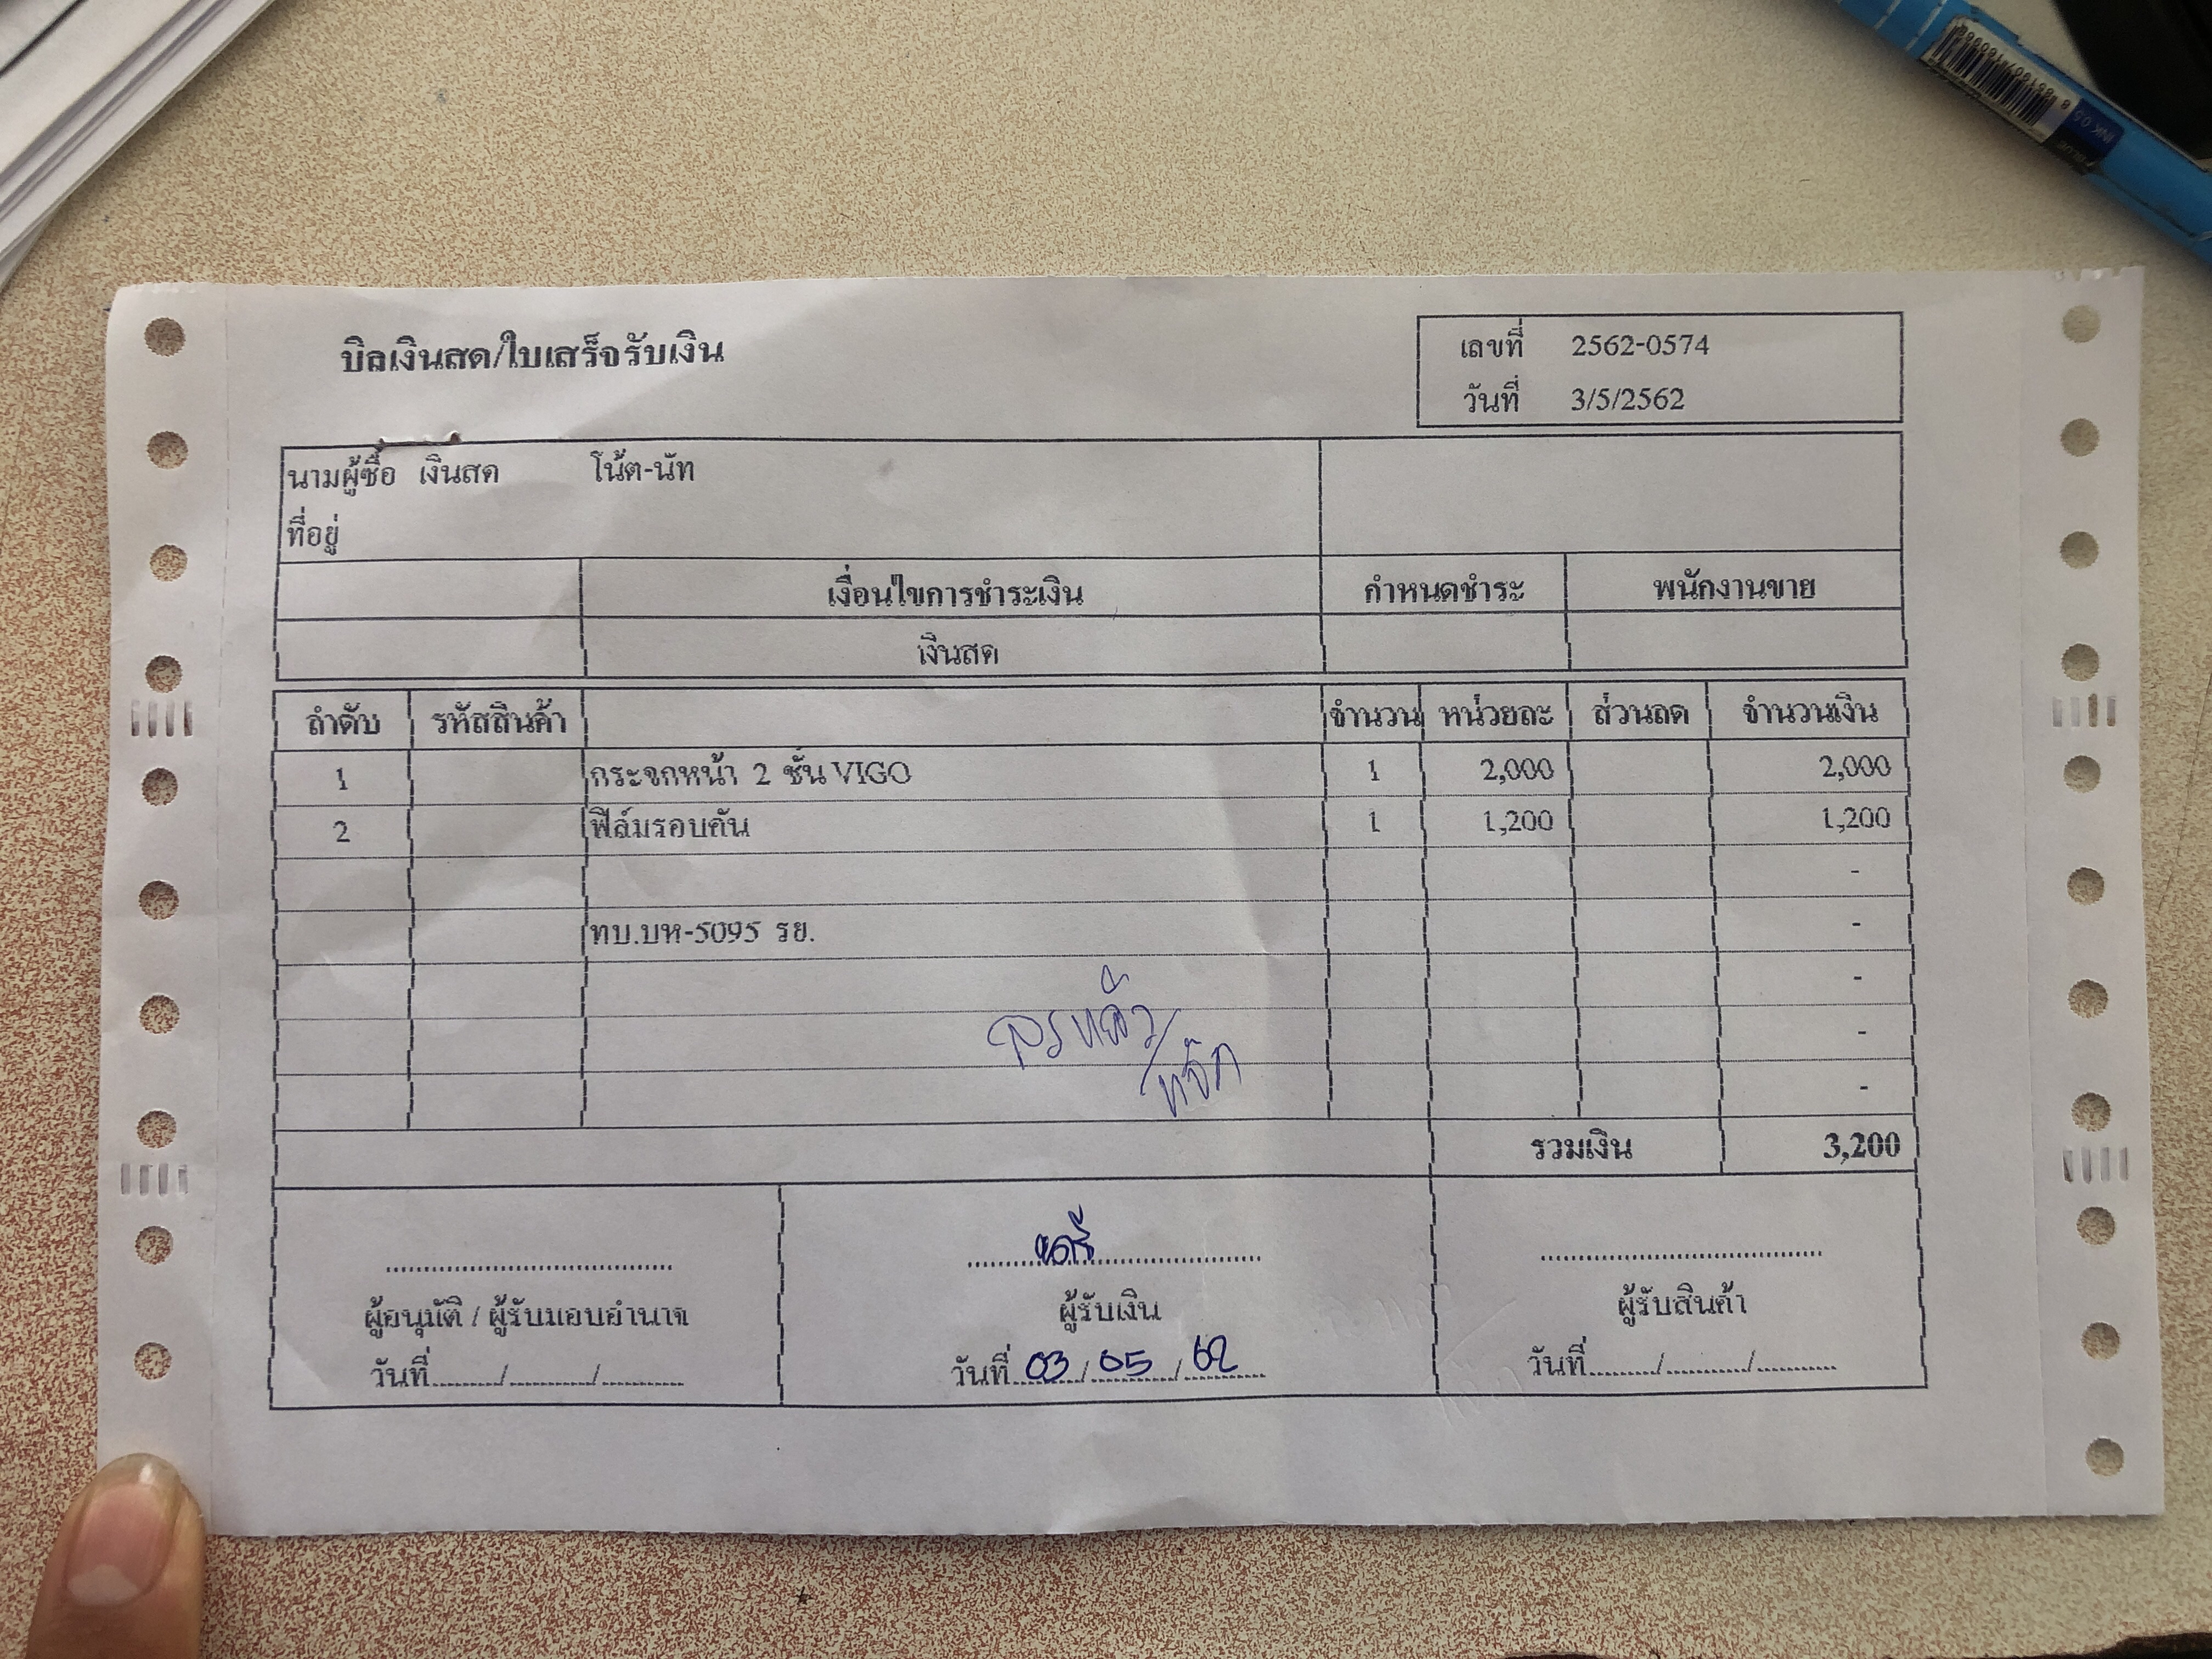 บิลเงินสด/ใบเสร็จรับเงิน
เลขที่ 2562-0574
วันที่ 3/5/2562
นามผู้ซื้อ เงินสด โน้ต-นัท
ที่อยู่
เงื่อนไขการชำระเงิน กำหนดชำระ พนักงานขาย
เงินสด
ลำดับ รหัสสินค้า จำนวน หน่วยละ ส่วนลด จำนวนเงิน
1 กระจกหน้า 2 ชั้น VIGO 1 2,000 2,000
2 ฟิล์มรอบคัน 1 1,200 1,200
-
ทบ.บห-5095 รย. -
-
-
-
รวมเงิน 3,200
ผู้อนุมัติ / ผู้รับมอบอำนาจ ผู้รับเงิน ผู้รับสินค้า
วันที่......../............/............ วันที่ 03 / 05 / 62 วันที่........./............/............
INK 0.5
BLUE